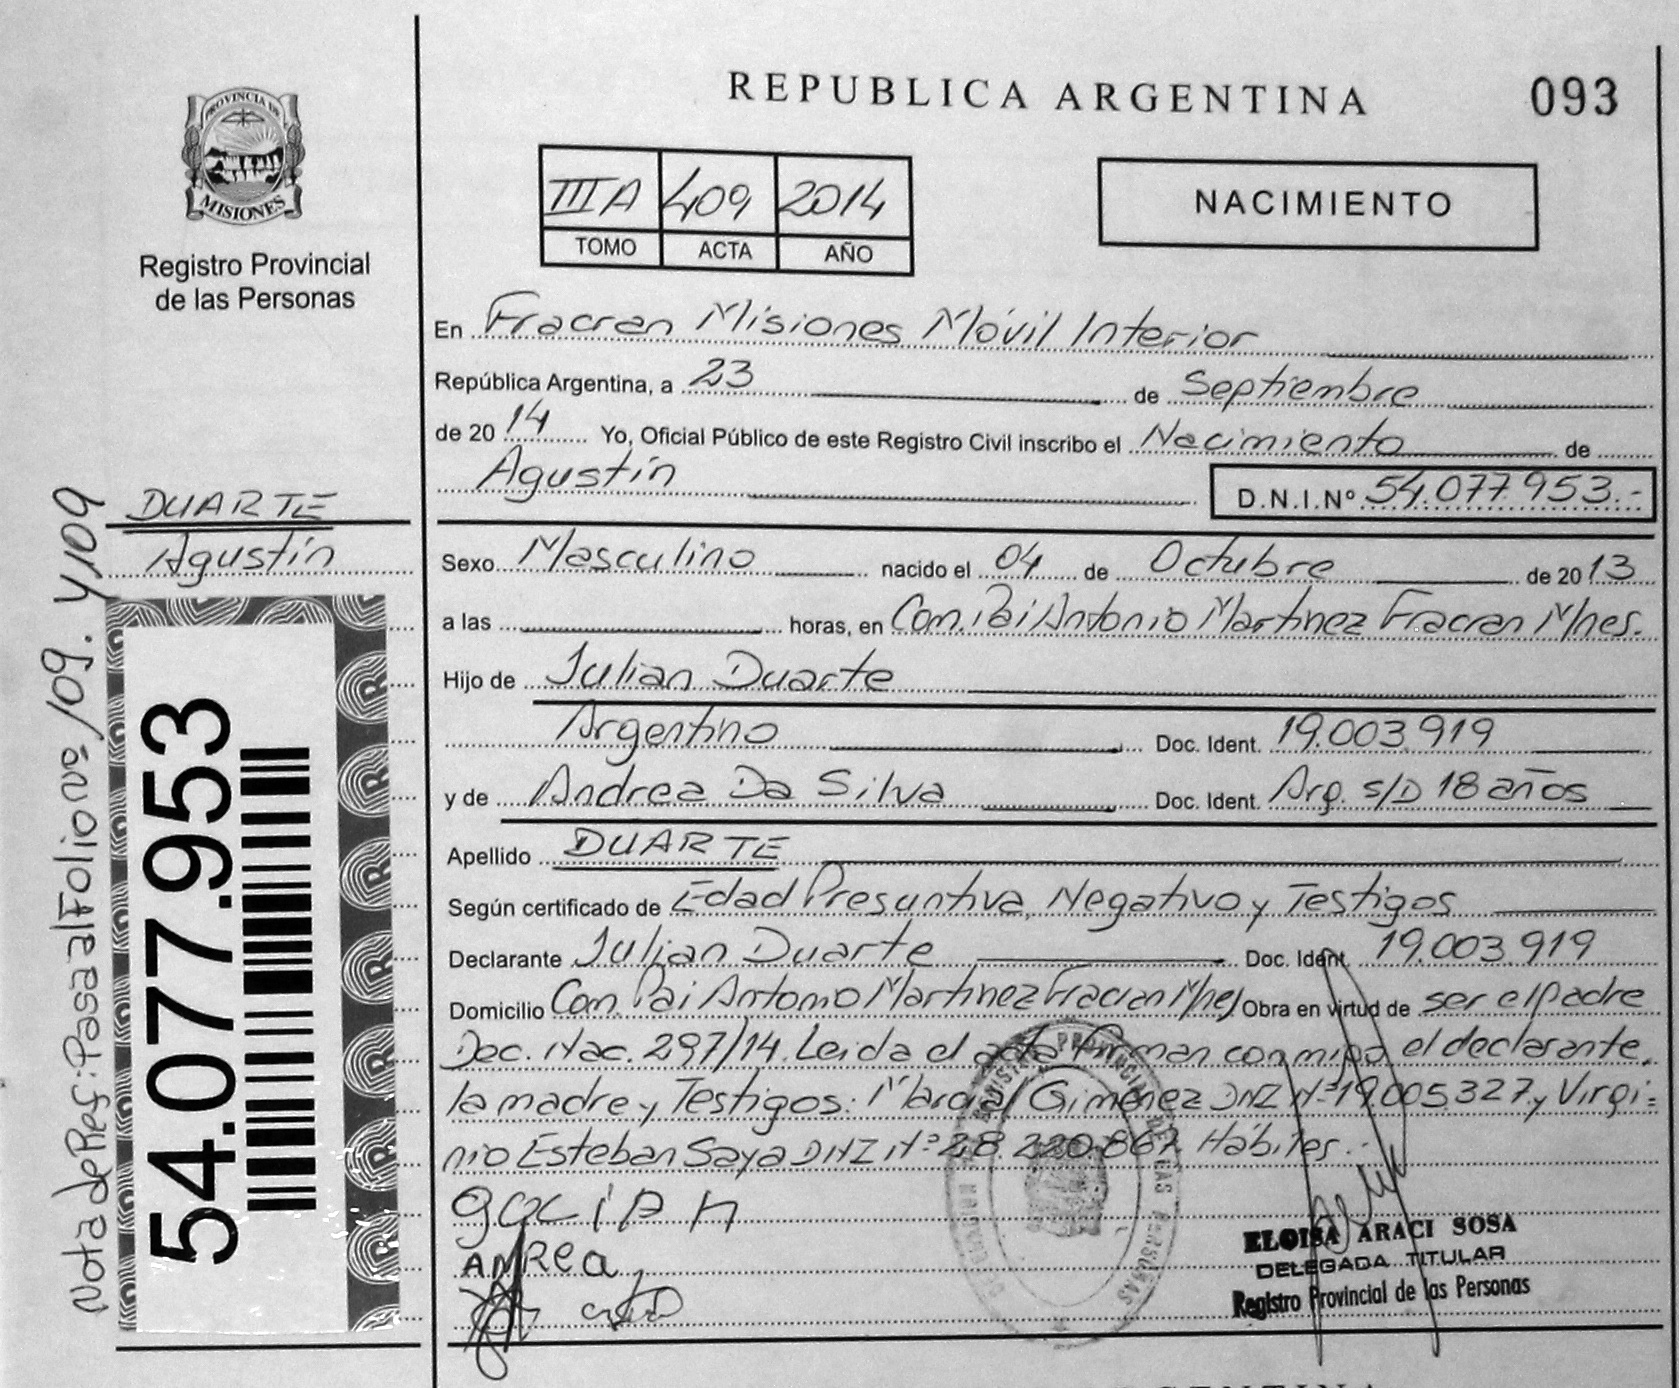 REPUBLICA ARGENTINA
093
PROVINCIA DE
MISIONES
Registro Provincial
de las Personas
III A 409 2014
TOMO ACTA AÑO
NACIMIENTO
En Fracran Misiones Móvil Interior
República Argentina, a 23 de Septiembre
de 2014 Yo, Oficial Público de este Registro Civil inscribo el Nacimiento de
Agustín D.N.I.Nº 54.077.953.-
DUARTE
Agustín
Sexo Masculino nacido el 04 de Octubre de 2013
a las horas, en Com. Pai Antonio Martinez Fracran Mnes.
Hijo de Julian Duarte
Argentino Doc. Ident. 19.003.919
y de Andrea Da Silva Doc. Ident. Arg. s/D 18 años
Apellido DUARTE
Según certificado de Edad Presuntiva, Negativo y Testigos
Declarante Julian Duarte Doc. Ident. 19.003.919
Domicilio Com. Pai Antonio Martinez Fracran Mnes Obra en virtud de ser el padre
Dec. Nac. 297/14. Leida el acta Firman con mipo el declarante,
la madre y Testigos: Marcial Giménez DNI Nº 19.005.327 y Virgi=
nio Esteban Saya DNI Nº 28.220.867 Hábiles.-
ANREA
ELOISA ARACI SOSA
DELEGADA TITULAR
Registro Provincial de las Personas
54.077.953
Nota de Ref: Pasa al Folio nº 109. Y109